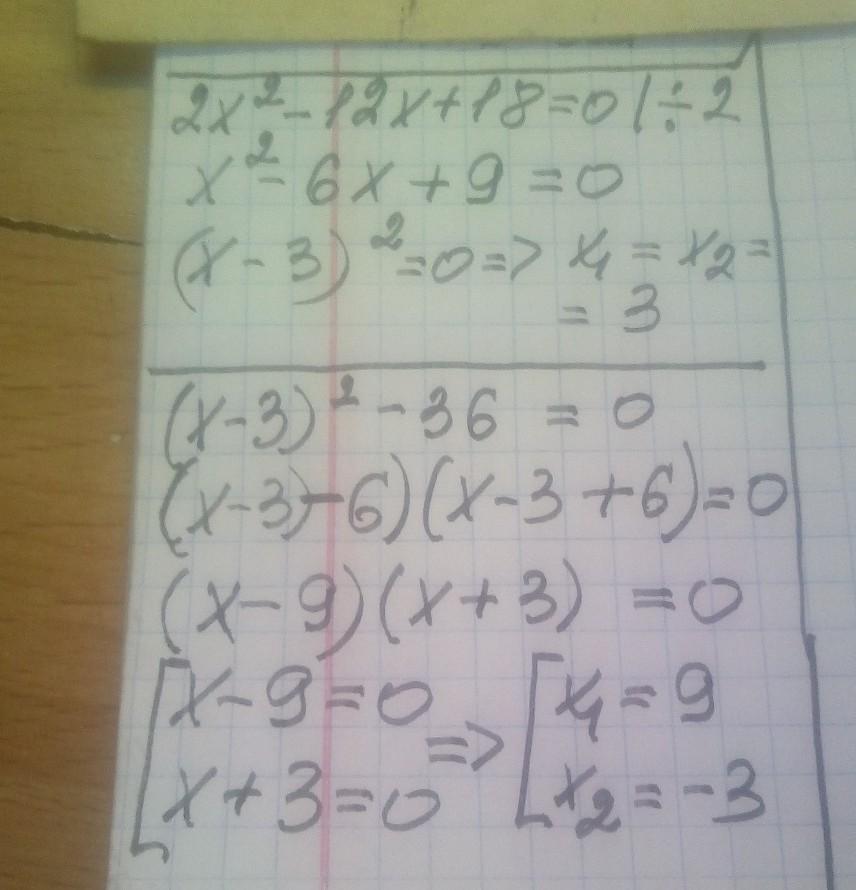 2x² - 12x + 18 = 0 | ÷ 2
x² - 6x + 9 = 0
(x - 3)² = 0 => x₁ = x₂ =
= 3
(x - 3)² - 36 = 0
(x - 3) - 6)(x - 3 + 6) = 0
(x - 9)(x + 3) = 0
[x - 9 = 0 => [x₁ = 9
x + 3 = 0 x₂ = -3